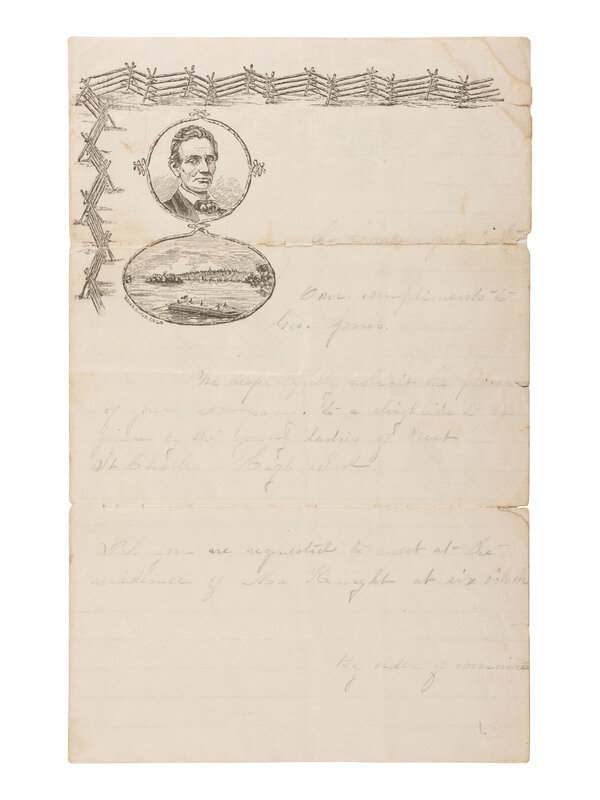 Our compliments to
Geo. Jones.
We respectfully solicit the pleasure
of your company. to a sleighride to be
given by the young ladies of West
St Charles High
P.S you are requested to meet at the
residence of Mr Knight at six o'clock
By order of committee